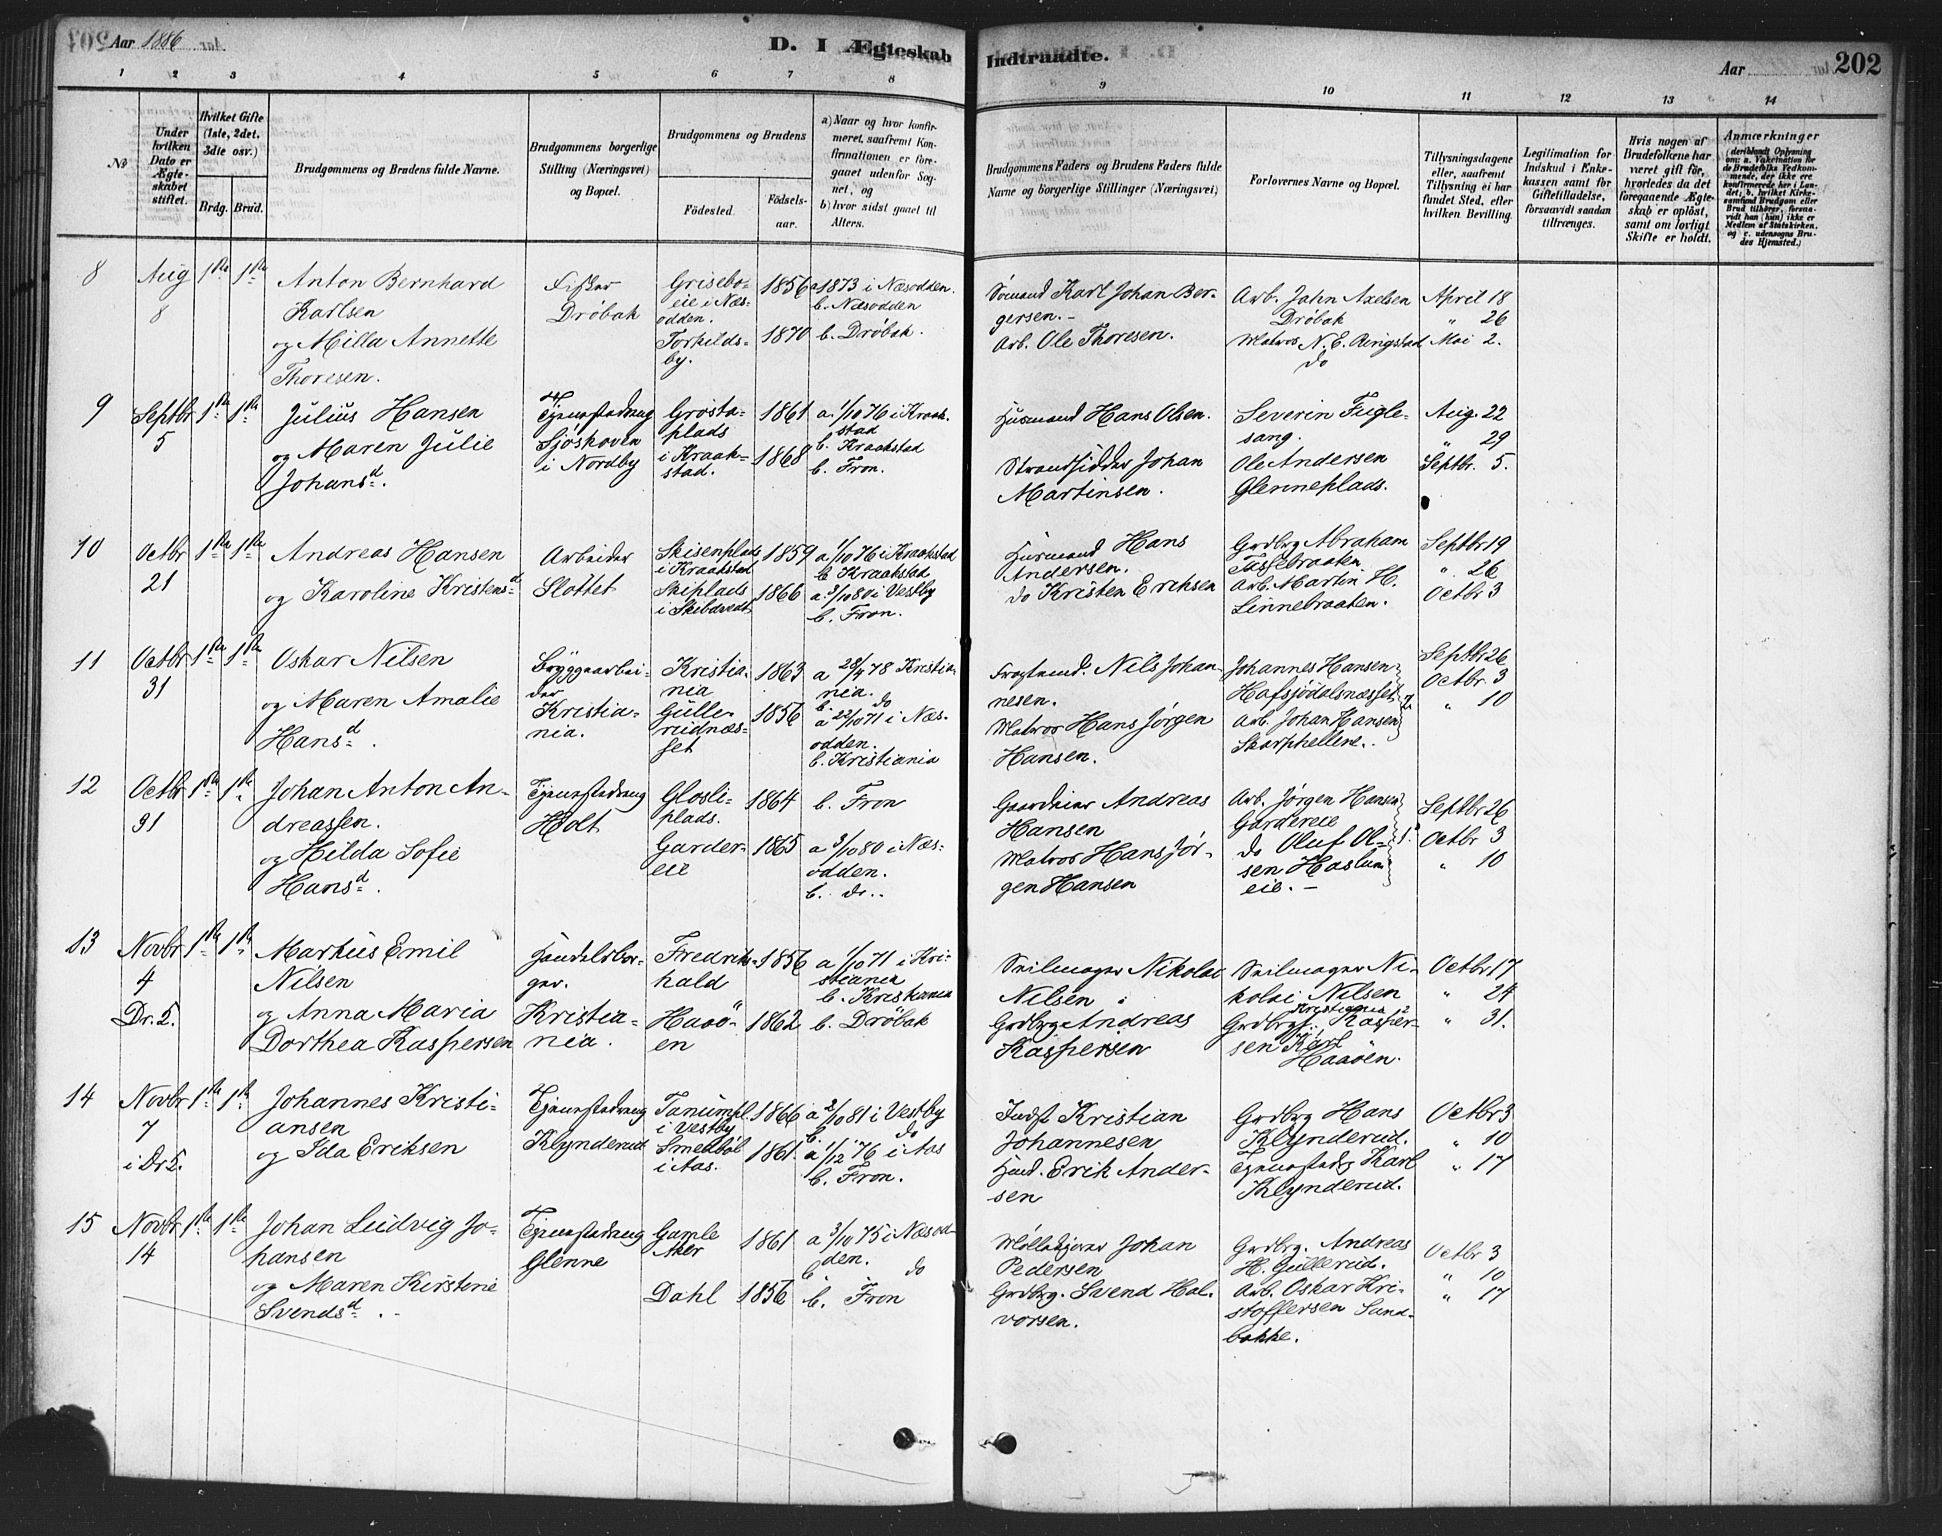 Aar 1886
D. I Ægteskab Indtraadte.
Aar
202
1 2 3 4 5 6 7 8 9 10 11 12 13 14
No
Under hvilken Dato er Ægteskabet stiftet.
Hvilket Gifte (1ste, 2det, 3die osv.)
Brdg. Brud.
Brudgommens og Brudens fulde Navne.
Brudgommens borgerlige Stilling (Næringsvei) og Bopæl.
Brudgommens og Brudens
Födested
Födselsaar.
a) Naar og hvor konfirmeret, saafremt Konfirmationen er foregaaet udenfor Sognet, og
b) hvor sidst gaaet til Alters.
Brudgommens Faders og Brudens Faders fulde Navne og borgerlige Stillinger (Næringsvei)
Forlovernes Navne og Bopæl.
Tillysningsdagene eller, saafremt Tillysning ei har fundet Sted, efter hvilken Bevilling.
Legitimation for Indskud i Enkekassen samt for Giftetilladelse, forsaavidt saadan tiltrænges.
Hvis nogen af Brudefolkene har været gift för, hvorledes da det foregaaende Ægteskab er oplöst, samt om lovligt Skifte er holdt.
Anmærkninger
(deriblandt Oplysning om: a. Vakcination for de Brudefolks Vedkommende, der ikke ere konfirmerede her i Landet; b. hvilket Kirkesamfund Brudgom eller Brud tilhörer, forsaavidt han (hun) ikke er Medlem af Statskirken, og c. udensogns Brudes Hjemsted.)
8
Aug 8
1ste 1ste
Anton Bernhard
Karlsen
og Milla Annette
Thoresen.
Fisker
Drøbak
Grisebo-
eie i Næs-
odden.
Torkilds-
by.
1856
1870
a 1873 i Næsodden.
b. Næsodden
b. Drøbak.
Sømand Karl Johan Ber-
gersen.-
Arb. Ole Thoresen.
Arb. John Axelsen
Drøbak
Matros N. E. Ringstad
do
April 18
" 26
Mai 2.
9
Septbr 5
1ste 1ste
Julius Hansen
og Maren Julie
Johansd.
Tjenestedreng
Sjøskoven
i Nordby
Grøsta-
plads
i Kraak-
stad.
1861
1868
a. 1/10 76 i Kraak-
stad
b. Kraakstad
b. Fron.
Husmand Hans Olsen.
Strandsidder Johan
Martinsen.
Severin Fugle-
sang.
Ole Andersen
Glenneplads.
Aug. 22
" 29
Septbr. 5.
10
Octbr 21
1ste 1ste
Andreas Hansen
og Karoline Kristensd
Arbeider
Slottet
Skisenplads
i Kraakstad
Skiplads
i Skibdvedt
1859
1866
a 1/10 76 i Kraakstad
b. Kraakstad
a 3/10 80 i Vestby
b. Fron.
Husmand Hans
Andersen.
do Kristen Eriksen
Grdbrg Abraham
Tassebraaten.
Arb. Martin H.
Linnebraaten.
Septbr 19
" 26
Octbr 3
11
Octbr 31
1ste 1ste
Oskar Nilsen
og Maren Amalie
Hansd.
Bryggearbei-
der
Kristia-
nia.
Kristia-
nia
Gulle-
rudnæs-
set
1863
1856
a 28/4 78 Kristia-
nia.
b. do
a 22/10 71 i Næs-
odden.
b. Kristiania
Fragtmd. Nils Johan-
nesen.
Matros Hans Jørgen
Hansen.
Johannes Hansen
Hafsjödalsnæsset
Arb. Johan Hansen
Skarphellene.
Septbr 26
Octbr. 3
" 10
12
Octbr 31
1ste 1ste
Johan Anton An-
dreassen.
og Hilda Sofie
Hansd.
Tjenestedreng
Holt
Glosli-
plads.
Garder-
eie
1864
1865
b. Fron
a 3/10 80 i Næs-
odden.
b. do.
Gaardeier Andreas
Hansen
Matros Hans Jør-
gen Hansen
Arb. Jørgen Hansen
Gardereie
do Oluf Ol-
sen Haslum
eie.-
Septbr 26
Octbr 3
" 10
13
Novbr 4
Dr. 5.
1ste 1ste
Markus Emil
Nilsen
og Anna Maria
Dorthea Kaspersen
Handelsbor-
ger.
Kristia-
nia.
Fredriks-
hald
Haaö-
en
1856
1862
a 1/10 71 i Kri-
stiania
b. Kristiania
b. Drøbak
Seilmager Nikolai
Nilsen
Grdbrg Andreas
Kaspersen
Seilmager Ni-
kolai Nilsen
Kristiania
Grdbrgs. Kasper-
sen Karl
Haaöen.
Octbr 17
" 24
" 31.
14
Novbr 7
i Dr 5.
1ste 1ste
Johannes Kristi-
ansen
og Ida Eriksen
Tjenestedreng
Klynderud
Tanumpl.
i Vestby
Smedbøl
i Aas.
1866
1861.
a 2/10 81 i Vestby
b. do
a 1/12 76 i Aas
b. Fron.
Indst Kristian
Johannesen
Husd. Erik Ander-
sen
Grdbrg Hans
Klynderud.
Tjenestedrg Karl
Klynderud.
Octbr 3
" 10
" 17
15
Novbr 14
1ste 1ste
Johan Ludvig Jo-
hansen
og Maren Kirstine
Svendsd.
Tjenestedreng
Glenne
Gamle
Aker
Dahl
1861
1856
a 3/10 75 i Næsod-
den.
b. do
b. Fron
Møllekjører Johan
Pedersen
Grdbrg. Svend Hal-
vorsen.
Grdbrg. Andreas
H. Gullerud.
Arb. Oskar Kri-
stoffersen Sand-
bakke.
Octbr 3
" 10
" 17